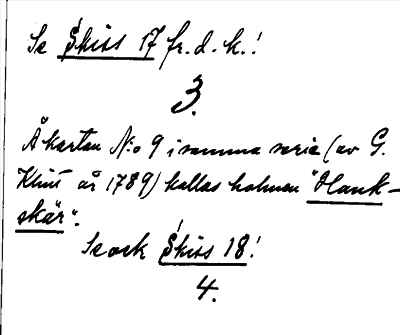 Se Skiss 17 fr. d. k.!
3.
Å kartan N:o 9 i samma serie (av G.
Klint år 1789) kallas holmen "Hank-
skär".
Se ock Skiss 18!
4.